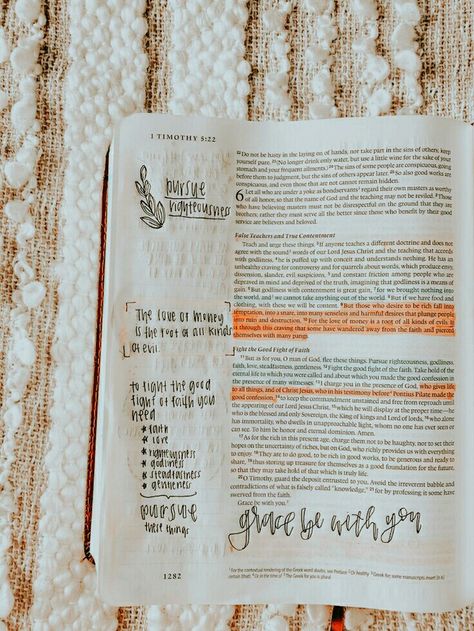 1 TIMOTHY 5:22
pursue
righteousness
The love of money
is the root of all kinds
of evil.
to fight the good
fight of faith you
need
* faith
* love
* righteousness
* godliness
* steadfastness
* gentleness
pursue
these things
1282
²² Do not be hasty in the laying on of hands, nor take part in the sins of others; keep
yourself pure. ²³ (No longer drink only water, but use a little wine for the sake of your
stomach and your frequent ailments.) ²⁴ The sins of some people are conspicuous, going
before them to judgment, but the sins of others appear later. ²⁵ So also good works are
conspicuous, and even those that are not cannot remain hidden.
6 Let all who are under a yoke as bondservants regard their own masters as worthy
of all honor, so that the name of God and the teaching may not be reviled. ² Those
who have believing masters must not be disrespectful on the ground that they are
brothers; rather they must serve all the better since those who benefit by their good
service are believers and beloved.
False Teachers and True Contentment
Teach and urge these things. ³ If anyone teaches a different doctrine and does not
agree with the sound words of our Lord Jesus Christ and the teaching that accords
with godliness, ⁴ he is puffed up with conceit and understands nothing. He has an
unhealthy craving for controversy and for quarrels about words, which produce envy,
dissension, slander, evil suspicions, ⁵ and constant friction among people who are
depraved in mind and deprived of the truth, imagining that godliness is a means of
gain. ⁶ But godliness with contentment is great gain, ⁷ for we brought nothing into
the world, and we cannot take anything out of the world. ⁸ But if we have food and
clothing, with these we will be content. ⁹ But those who desire to be rich fall into
temptation, into a snare, into many senseless and harmful desires that plunge people
into ruin and destruction. ¹⁰ For the love of money is a root of all kinds of evils. It
is through this craving that some have wandered away from the faith and pierced
themselves with many pangs.
Fight the Good Fight of Faith
¹¹ But as for you, O man of God, flee these things. Pursue righteousness, godliness,
faith, love, steadfastness, gentleness. ¹² Fight the good fight of the faith. Take hold of the
eternal life to which you were called and about which you made the good confession in
the presence of many witnesses. ¹³ I charge you in the presence of God, who gives life
to all things, and of Christ Jesus, who in his testimony before Pontius Pilate made the
good confession, ¹⁴ to keep the commandment unstained and free from reproach until
the appearing of our Lord Jesus Christ, ¹⁵ which he will display at the proper time—he
who is the blessed and only Sovereign, the King of kings and Lord of lords, ¹⁶ who alone
has immortality, who dwells in unapproachable light, whom no one has ever seen or
can see. To him be honor and eternal dominion. Amen.
¹⁷ As for the rich in this present age, charge them not to be haughty, nor to set their
hopes on the uncertainty of riches, but on God, who richly provides us with everything
to enjoy. ¹⁸ They are to do good, to be rich in good works, to be generous and ready to
share, ¹⁹ thus storing up treasure for themselves as a good foundation for the future,
so that they may take hold of that which is truly life.
²⁰ O Timothy, guard the deposit entrusted to you. Avoid the irreverent babble and
contradictions of what is falsely called "knowledge," ²¹ for by professing it some have
swerved from the faith.
Grace be with you.
grace be with you